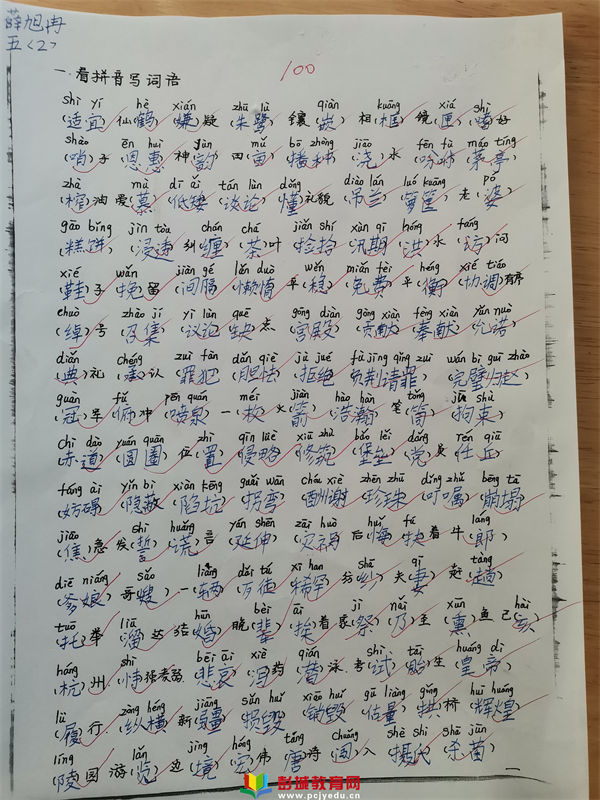 薛旭冉
五〈2〉
100
一.看拼音写词语
shì yí hè xián zhū lù qiàn kuāng xiá shì
(适宜) 仙(鹤) (嫌)疑 (朱鹭) 镶(嵌) 相(框) 镜(匣) (嗜)好
shào ēn huì yùn mǔ bō zhǒng jiāo fēn fù máo tíng
(哨)子 (恩惠) 神(韵) 四(亩) (播种) (浇)水 (吩咐) (茅亭)
zhà mù dī ǎi tán lùn dǒng diào lán luó kuāng pó
(榨)油 爱(慕) (低矮) (谈论) (懂)礼貌 (吊兰) (箩筐) 老(婆)
gāo bǐng jìn tòu chán chá jiǎn shí xùn qī hóng fǎng
(糕饼) (浸透) 纠(缠) (茶)叶 (捡拾) (汛期) (洪)水 (访)问
xié wǎn jiàn gé lǎn duò wěn miǎn fèi héng xié tiáo
(鞋)子 (挽)留 (间隔) (懒惰) 平(稳) (免费) 平(衡) (协调)有序
chuò zhào jí yì lùn quē gōng diàn gòng xiàn fèng xiàn yǔn nuò
(绰)号 (召集) (议论) (缺)点 (宫殿) (贡献) (奉献) (允诺)
diǎn chéng zuì fàn dǎn qiè jù jué fù jīng qǐng zuì wán bì guī zhào
(典)礼 (承)认 (罪犯) (胆怯) (拒绝) (负荆请罪) (完璧归赵)
guàn fǔ pēn quán méi jiàn hào hàn tǒng jū shù
(冠)军 (俯)冲 (喷泉) 一(枚) 火(箭) (浩瀚) 笔(筒) (拘束)
chì dào yuán quān zhì qīn lüè xiū zhù bǎo lěi dǎng rén qiū
(赤道) (圆圈) 位(置) (侵略) (修筑) (堡垒) (党)员 (任丘)
fáng ài yǐn bì xiàn kēng guǎi wān chóu xiè zhēn zhū dīng zhǔ bēng tā
(妨碍) (隐蔽) (陷坑) (拐弯) (酬谢) (珍珠) (叮嘱) (崩塌)
jiāo shì huǎng yán shēn zāi huò huǐ fú láng
(焦)急 发(誓) (谎)言 (延伸) (灾祸) 后(悔) 扶着 牛(郎)
diē niáng sǎo liǎng dài tì xī han shā qī tàng
(爹娘) 哥(嫂) 一(辆) (代替) (稀罕) (纱) 夫(妻) 赶(趟)
tuō liū hūn bèi āi jì nǎi xūn hài
(托)举 (溜)达 结(婚) 晚(辈) (挨)着 (祭) (乃)至 (熏)鱼 (亥)
háng shì bēi āi xiè qián shì tāi huáng dì
(杭)州 (恃)强凌弱 (悲哀) (泻)药 (潜)泳 考(试) (胎)生 (皇帝)
lǚ zòng héng jiāng sǔn huǐ xiāo huǐ gū liàng gǒng huī huáng
(履)行 (纵横) 新(疆) (损毁) (销毁) (估量) (拱)桥 (辉煌)
líng lǎn jìng hóng táng chuǎng shè shì shā jūn
(陵)园 游(览) 边(境) (宏)伟 (唐)诗 (闯)入 (摄氏) (杀菌)
彭城教育网
www.pcjyedu.cn